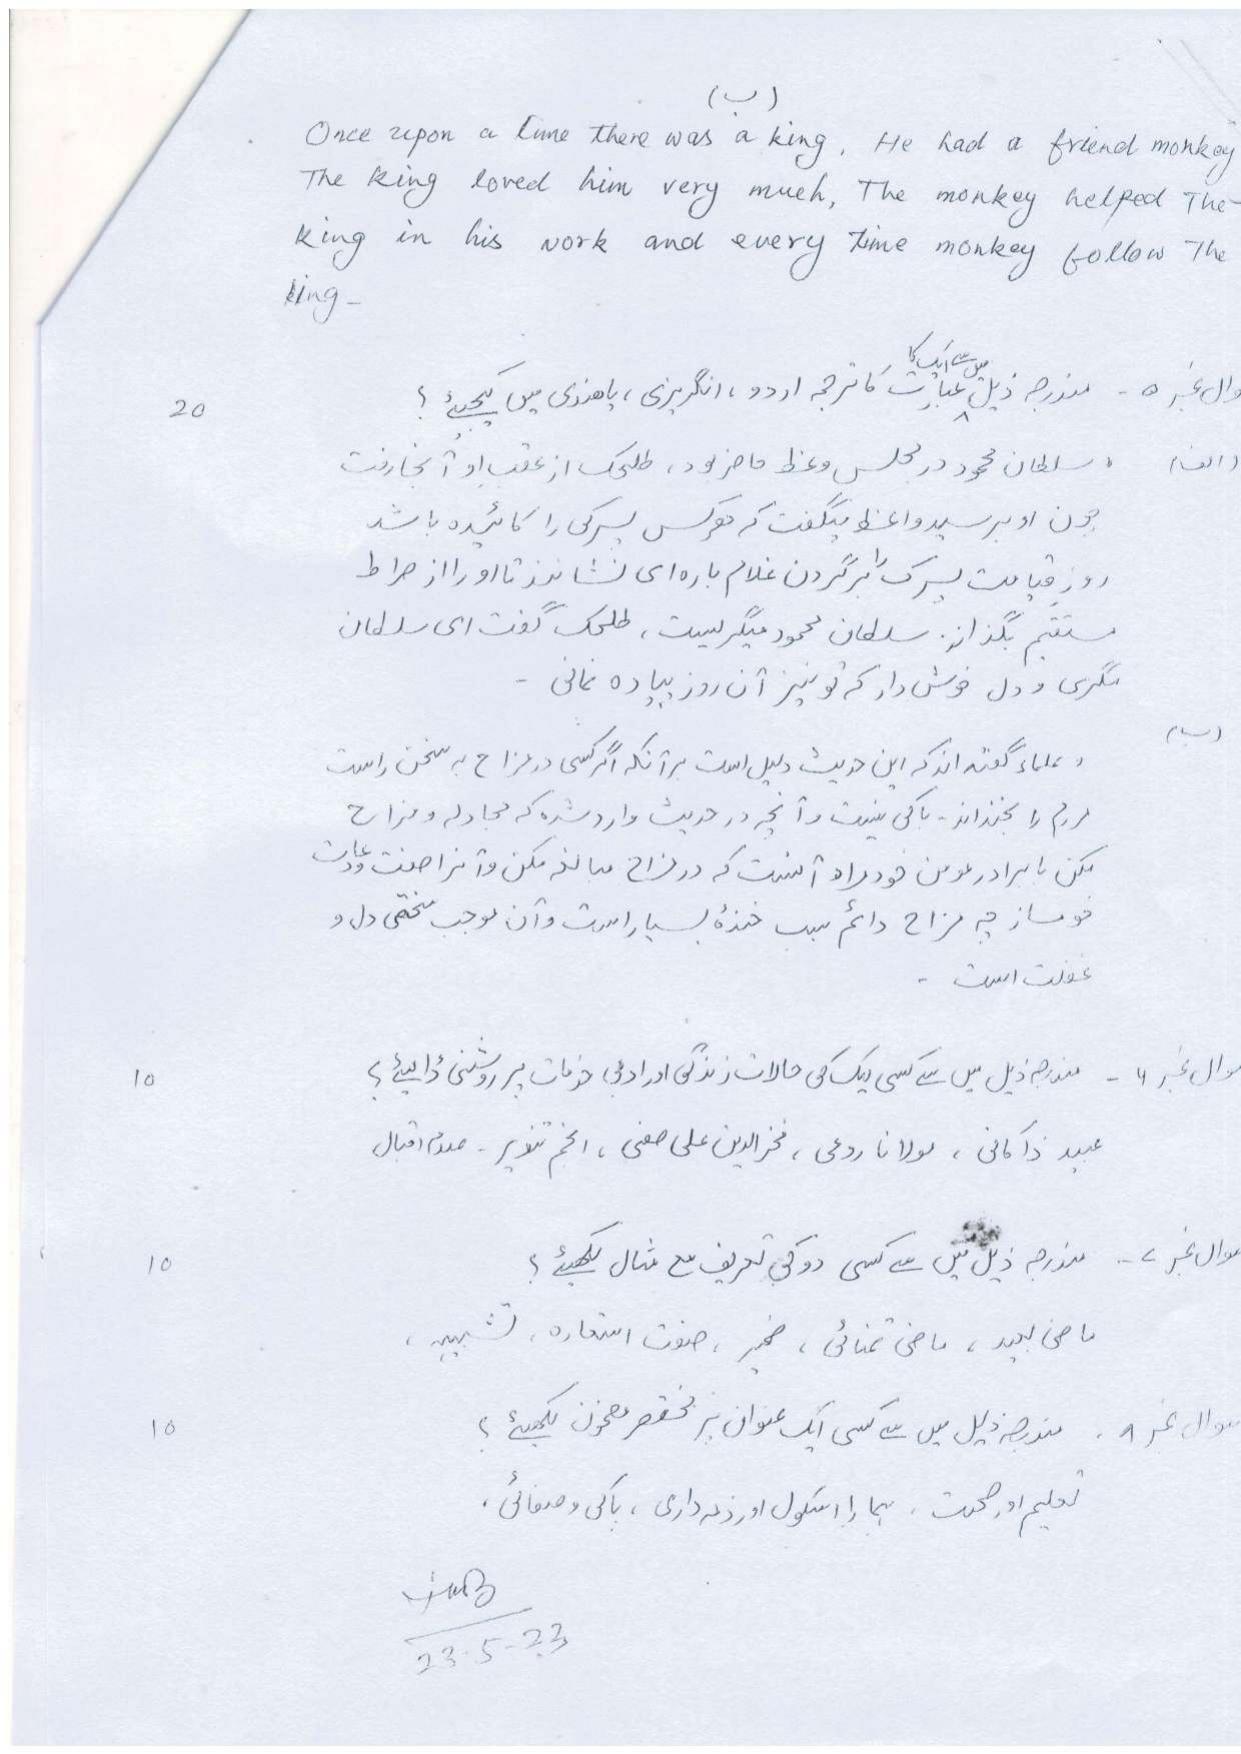 (ب)
Once upon a time there was a king. He had a friend monkey
The king loved him very much, The monkey helped The
king in his work and every time monkey follow The
king -
میں سے ایک کا
وال نمبر ۵ - مندرجہ ذیل عبارت کا ترجمہ اردو، انگریزی، یا ھندی میں کیجیئے ؟ 20
(الف) سلطان محمود در مجلس وعظ حاضر بود، طلحک از عقب او آنجا رفت
چون او برسید واعظ میگفت که هرکس پسرکی را گائیده باشد
روز قیامت پسرک را بر گردن غلام باره ای نشانند تا او را از صراط
مستقیم بگذراند. سلطان محمود میگریست، طلحک گفت ای سلطان
مگری و دل خوش دار که تو نیز آن روز پیاده نمانی -
(ب)
علماء گفته اند که این حدیث دلیل است بر آنکه اگر کسی در مزاح به سخن راست
مردم را بخنداند - باکی نیست و آنچه در حدیث وارد شده که مجادله و مزاح
مکن با برادر مومن خود مراد آنست که در مزاح مبالغه مکن و آنرا صفت و عادت
خود مساز چه مزاح دائم سبب خندۂ بسیار است و آن موجب سختی دل و
غفلت است -
سوال نمبر ۶ - مندرجہ ذیل میں سے کسی ایک کی حالات زندگی اور ادبی خدمات پر روشنی ڈالیئے ؟ 10
عبید ذاکانی ، مولانا رومی ، فخرالدین علی صفی ، انجم تنویر - علامہ اقبال
سوال نمبر ۷ - مندرجہ ذیل میں سے کسی دو کی تعریف مع مثال لکھیئے ؟ 10
ماضی بعید ، ماضی تمنائی ، ضمیر ، صنعت استعارہ ، تشبیہ ،
سوال نمبر ۸ . مندرجہ ذیل میں سے کسی ایک عنوان پر مختصر مضمون لکھیئے ؟ 10
تعلیم اور صحت ، ہمارا اسکول اور ذمہ داری ، پاکی و صفائی ،
23-5-23